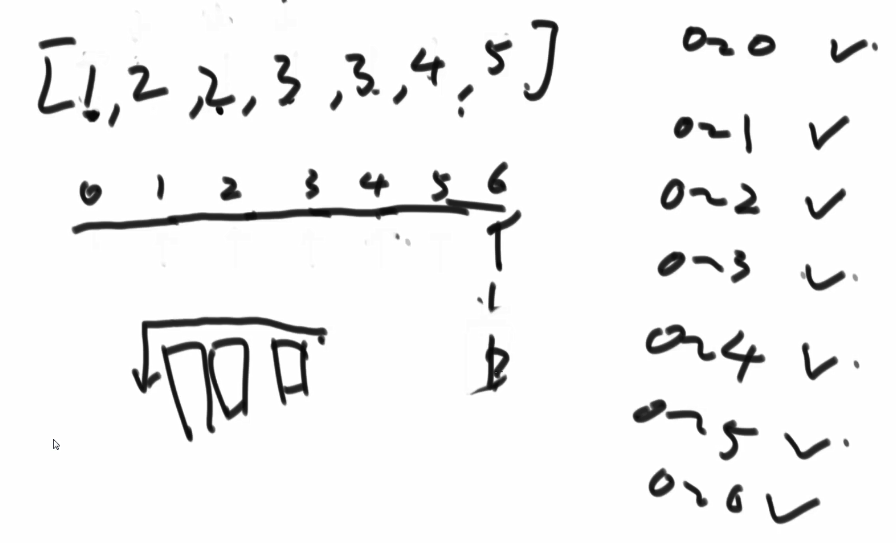 [1, 2, 2, 3, 3, 4, 5]
0 1 2 3 4 5 6
0~0 ✓
0~1 ✓
0~2 ✓
0~3 ✓
0~4 ✓
0~5 ✓
0~6 ✓